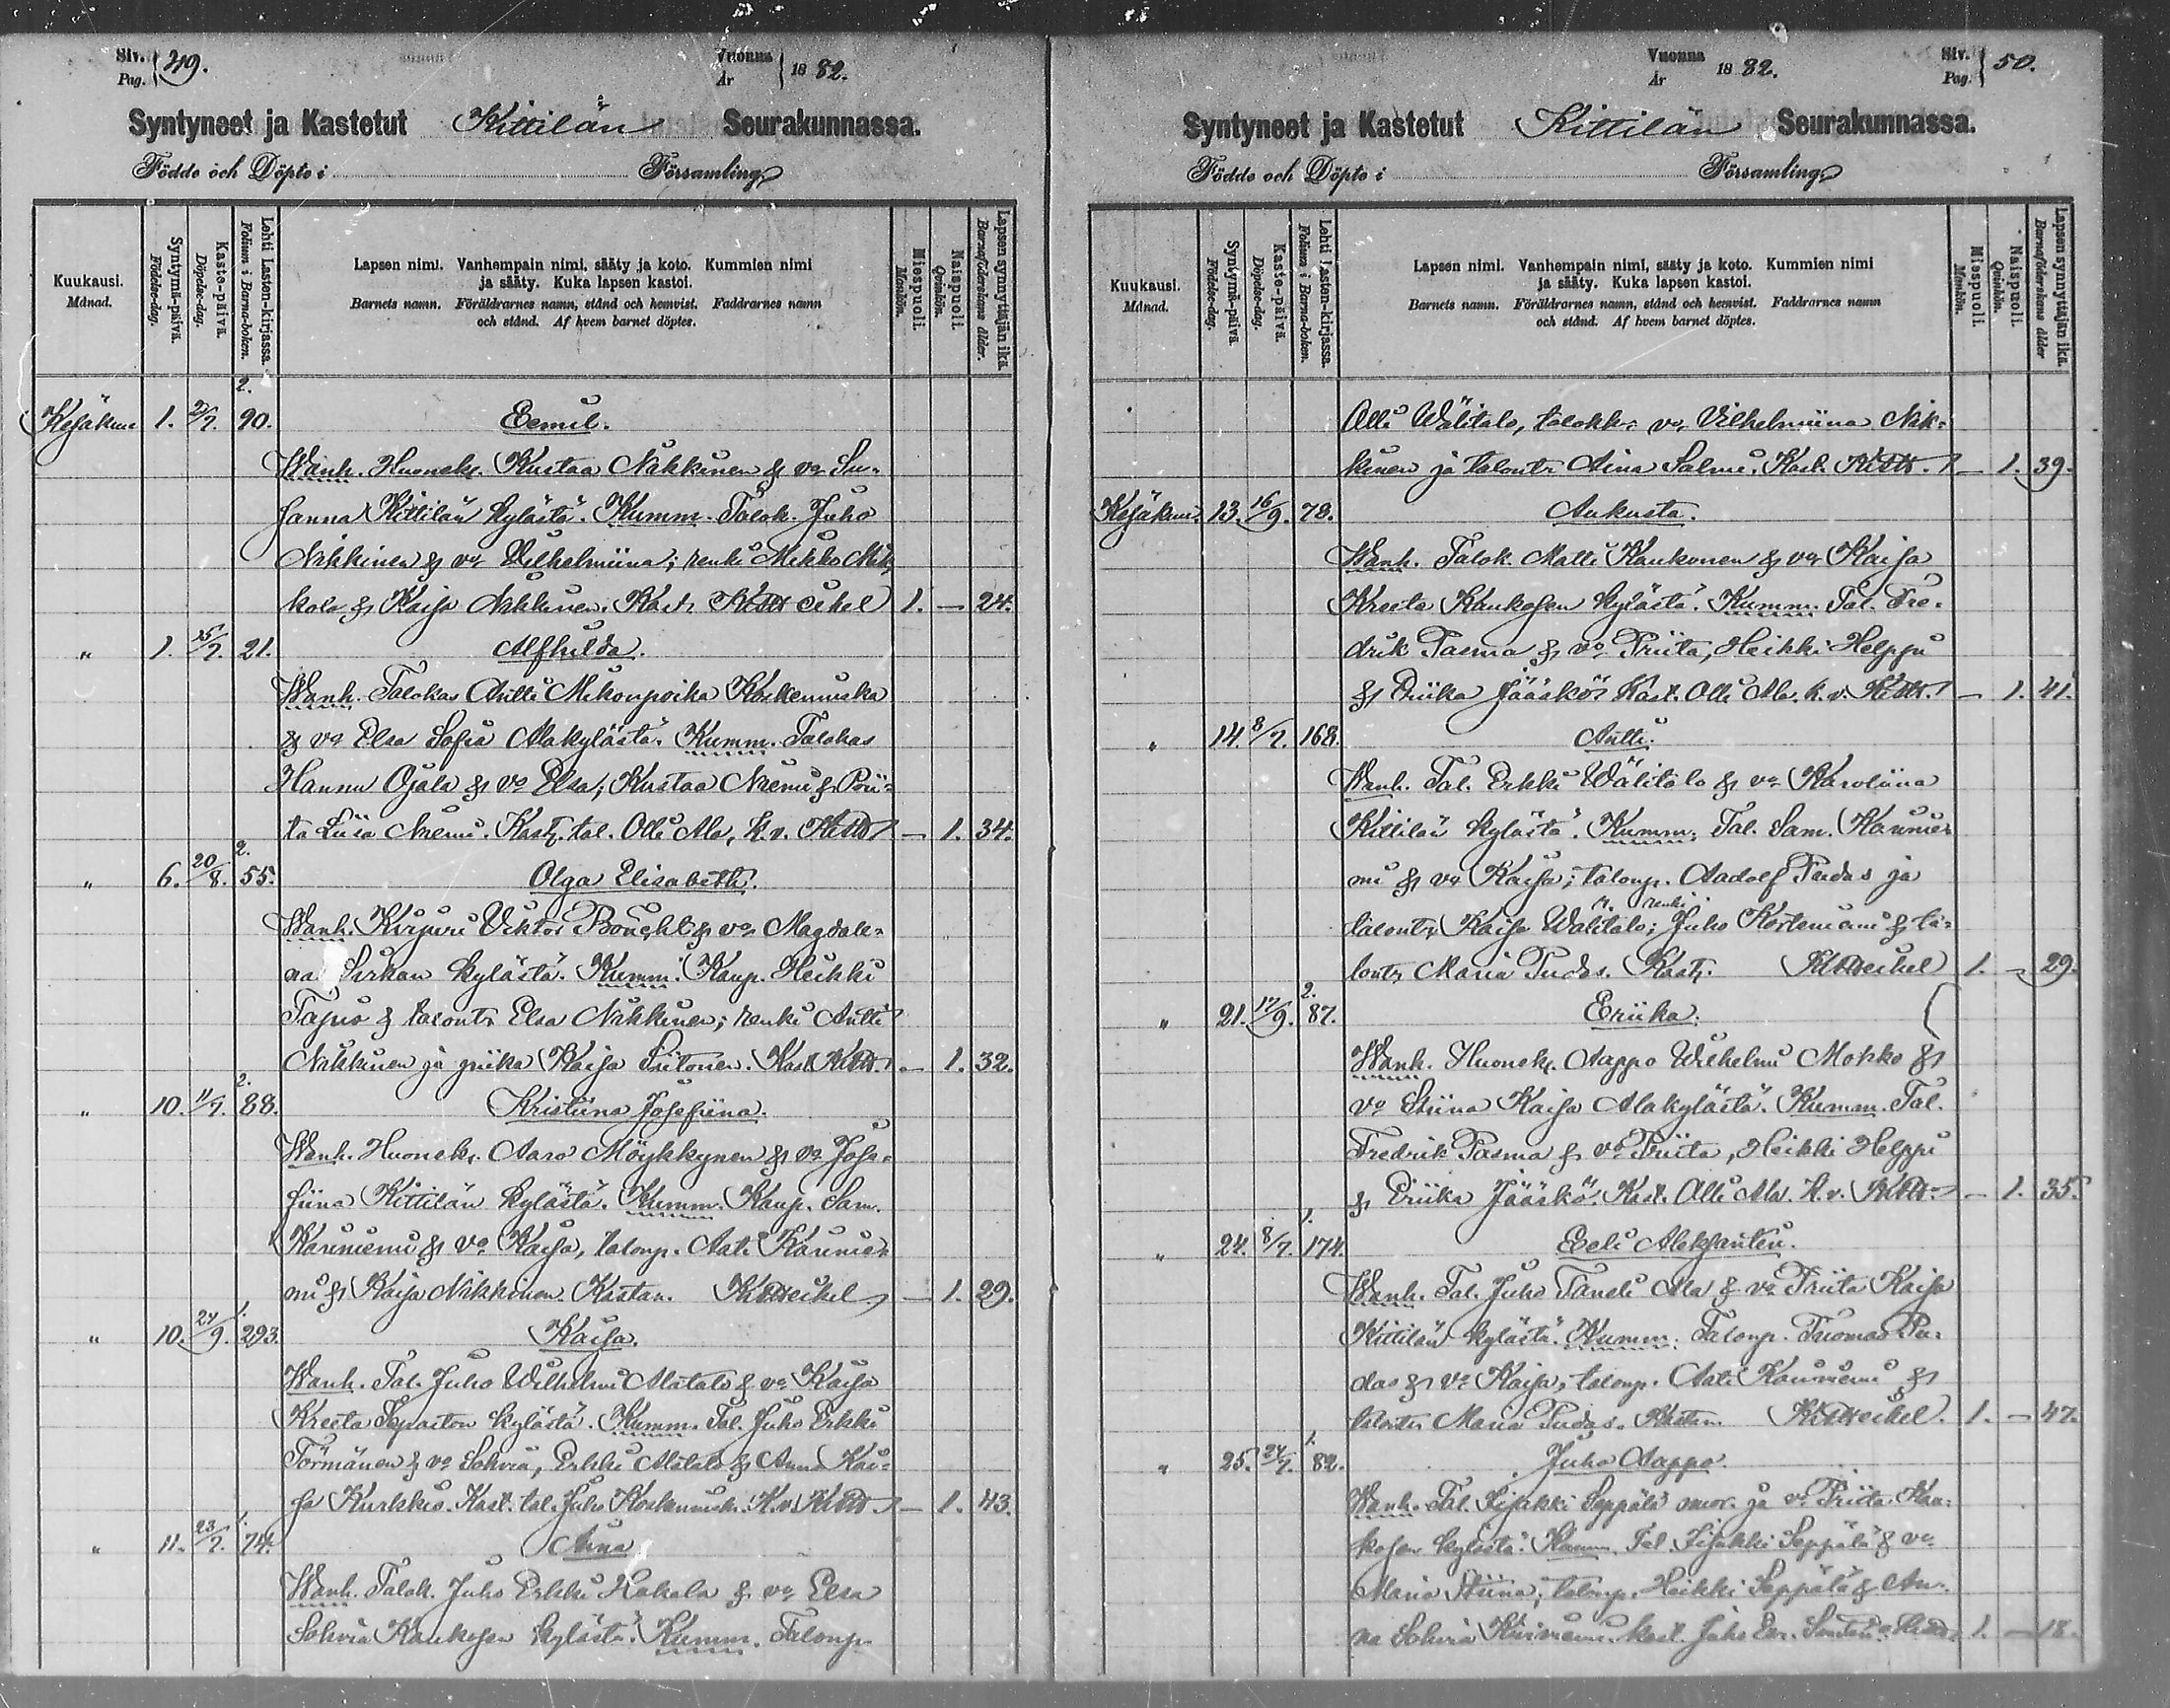 Siv. Pag. 49.
Vuonna År 1882.
Syntyneet ja Kastetut Kittilän Seurakunnassa.
Födde och Döpte i Församling
Kuukausi. Månad.
Syntymä-päivä. Födelse-dag.
Kaste-päivä. Döpelse-dag.
Lehti Lasten-kirjassa. Folium i Barna-boken.
Lapsen nimi. Vanhempain nimi, sääty ja koto. Kummien nimi
ja sääty. Kuka lapsen kastoi.
Barnets namn. Föräldrarnes namn, stånd och hemvist. Faddrarnes namn
och stånd. Af hvem barnet döptes.
Miespuoli. Mankön.
Naispuoli. Qvinkön.
Lapsen synnyttäjän ikä. Barnaföderskans ålder.
2.
Kesäkuu 1. 90. Eemil.
Wanh. Huonek. Kustaa Nikkinen & vo Su-
sanna Kittilän kylästä. Kumm. Talok. Juho
Nikkinen & vo Vilhelmiina; renki Mikko Mik-
kola & Kaisa Nikkinen. Kast. 1. — 24.
" 1. 15/7. 21. Alfhilda.
Wanh. Talokas Antti Mikonpoika Koskenniska
& vo Elsa Sofia Alakylästä. Kumm. Talokas
Hannu Ojala & vo Elsa; Kustaa Niemi & Prii-
ta Liisa Niemi. Kast. tal. Olli Ala, k. v. — 1. 34.
2.
" 6. 20/8. 55. Olga Elisabeth.
Wanh. Kirjuri Viktor & vo Magdale-
na Sirkan kylästä. Kumm. Kaup. Heikki
Tajus & talontr Elsa Nikkinen; renki Antti
Nikkinen ja piika Kaisa Kast. — 1. 32.
2.
" 10. 11/7. 88. Kristiina Josefiina.
Wanh. Huonek. Aaro Möykkynen & vo Jose-
fiina Kittilän kylästä. Kumm. Kaup. Sam.
Kariniemi & vo Kaisa, talonp. Aati Karinie-
mi & Kaisa Nikkinen. Kastan. — 1. 29.
1.
" 10. 24/9. 293. Kaisa.
Wanh. Tal. Juho Wilhelmi Alatalo & vo Kaisa
Kreeta kylästä. Kumm. Tal. Juho Erkki
Törmänen & vo Sohvia, Erkki Alatalo & Anna Kai-
sa Kurkkio. Kast. tal. Juho Koskennisk. K. v. — 1. 43.
1.
" 11. 23/7. 74. Aina
Wanh. Talok. Juho Erkki Hakala & vo Elsa
Sohvia Kaukosen kylästä. Kumm. Talonp.
Vuonna År 1882.
Siv. Pag. 50.
Syntyneet ja Kastetut Kittilän Seurakunnassa.
Födde och Döpte i Församling
Kuukausi. Månad.
Syntymä-päivä. Födelse-dag.
Kaste-päivä. Döpelse-dag.
Lehti Lasten-kirjassa. Folium i Barna-boken.
Lapsen nimi. Vanhempain nimi, sääty ja koto. Kummien nimi
ja sääty. Kuka lapsen kastoi.
Barnets namn. Föräldrarnes namn, stånd och hemvist. Faddrarnes namn
och stånd. Af hvem barnet döptes.
Miespuoli. Mankön.
Naispuoli. Qvinkön.
Lapsen synnyttäjän ikä. Barnaföderskans ålder
Olli Wälitalo, talokk. vo. Vilhelmiina Nik-
kinen ja talontr Aina Salmi. Kast. — 1. 39.
Kesäkuu. 13. 16/9. 78. Aukusta.
Wanh. Talok. Matti Kaukonen & vo Kaisa
Kreeta Kaukosen kylästä. Kumm. Tal. Fre-
drik Pasma & vo Priita, Heikki Helppi
& Eriika Jääskö. Kast. Olli Ala. k. v. — 1. 41.
" 14. 8/7. 168. Antti.
Wanh. Tal. Erkki Wälitalo & vo Karoliina
Kittilän kylästä. Kumm. Tal. Sam. Karinie-
mi & vo Kaisa; talonp. Aadolf Pudas ja
renki
talontr Kaisa Wälitalo; Juho Korteniemi & ta-
lontr Maria Pudas. Kast. 1. — 29.
2.
" 21. 17/9. 87. Eriika.
Wanh. Huonek. Aappo Wilhelmi Mokko &
vo Stiina Kaisa Alakylästä. Kumm. Tal.
Fredrik Pasma & vo Priita, Heikki Helppi
& Eriika Jääskö. Kast. Olli Ala. k. v. — 1. 35.
1.
" 24. 8/7. 174. Eeli Aleksanteri.
Wanh. Tal. Juho Taneli Ala & vo Priita Kaisa
Kittilän kylästä. Kumm. Talonp. Tuomas Pu-
das & vo Kaisa; talonp. Aati Kariniemi &
talontr Maria Pudas. Kastan. 1. — 47.
1.
" 25. 24/7. 82. Juho Aappo.
Wanh. Tal. Iisakki Seppälä nuor. ja vo Priita Kau-
kosen kylästä. Kumm. Tal. Iisakki Seppälä & vo
Maria Stiina; talonp. Heikki Seppälä & An-
na Sohvia Kast. Juho 1. — 18.